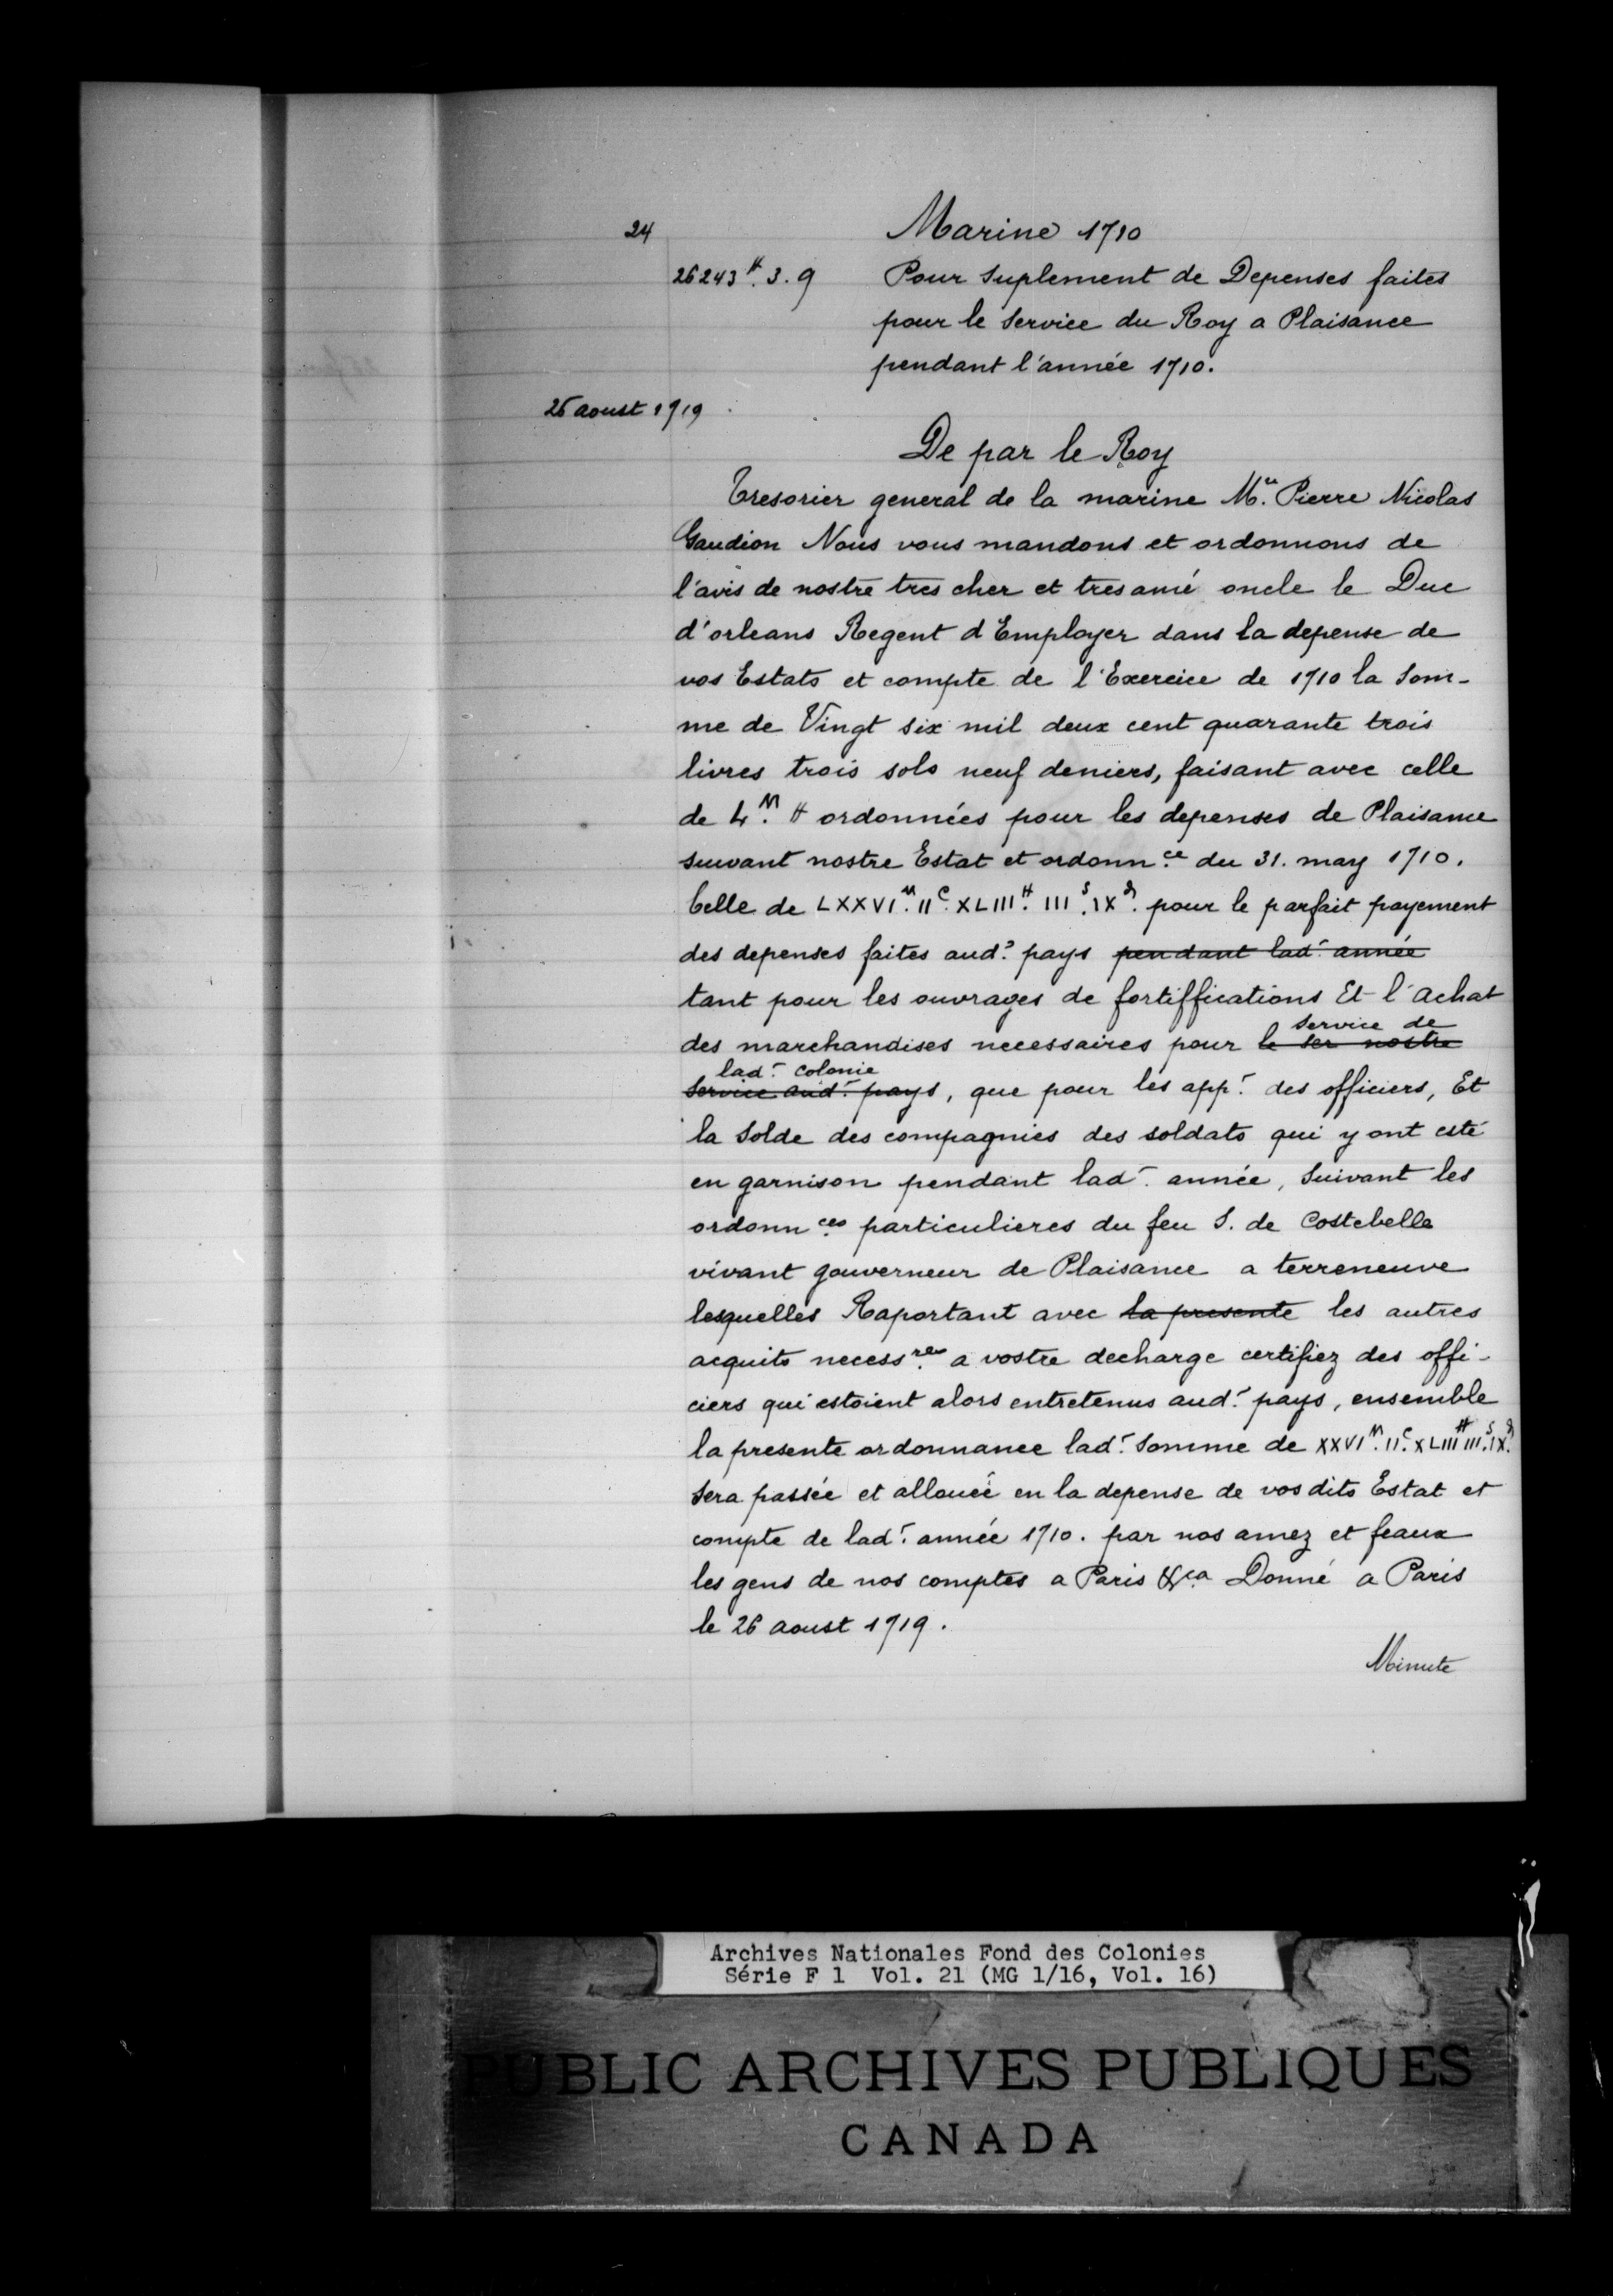 24
Marine 1710
26243ᴴ. 3. 9 Pour Suplement de Depenses faites
pour le Service du Roy a Plaisance
pendant l'année 1710.
26 aoust 1719
De par le Roy
Tresorier general de la marine Mᵉ. Pierre Nicolas
Gaudion Nous vous mandons et ordonnons de
l'avis de nostre tres cher et tres amé oncle le Duc
d'orleans Regent d'Employer dans la depense de
vos Estats et compte de l'Exercice de 1710 la Som-
me de Vingt six mil deux cent quarante trois
livres trois sols neuf deniers, faisant avec celle
de Lᴹ. ᴴ ordonnées pour les depenses de Plaisance
suivant nostre Estat et ordonn.ᶜᵉ du 31. may 1710.
Celle de LXXVIᴹ. IIᶜ. XLIIIᴴ. IIIˢ. IXᵈ. pour le parfait payement
des depenses faites aud.ᵗ pays pendant lad.ᵗ année
tant pour les ouvrages de fortiffications Et l'achat
service de
des marchandises necessaires pour le ser nostre
lad.ᵗ Colonie
Service aud.ᵗ pays, que pour les app.ᵗ des officiers, Et
la Solde des compagnies des soldats qui y ont esté
en garnison pendant lad.ᵗ année, Suivant les
ordonn.ᶜᵉˢ particulieres du feu S. de Costebelle
vivant gouverneur de Plaisance a terreneuve
lesquelles Raportant avec la presente les autres
acquits necess.ʳᵉˢ a vostre decharge certifiez des offi-
ciers qui estoient alors entretenus aud.ᵗ pays, ensemble
la presente ordonnance lad.ᵗ Somme de XXVIᴹ. IIᶜ. XLIIIᴴ IIIˢ. IXᵈ.
Sera passée et allouée en la depense de vosdits Estat et
compte de lad.ᵗ année 1710. par nos amez et feaux
les gens de nos comptes a Paris &ca Donné a Paris
le 26 aoust 1719.
Minute
Archives Nationales Fond des Colonies
Série F 1 Vol. 21 (MG 1/16, Vol. 16)
PUBLIC ARCHIVES PUBLIQUES
CANADA